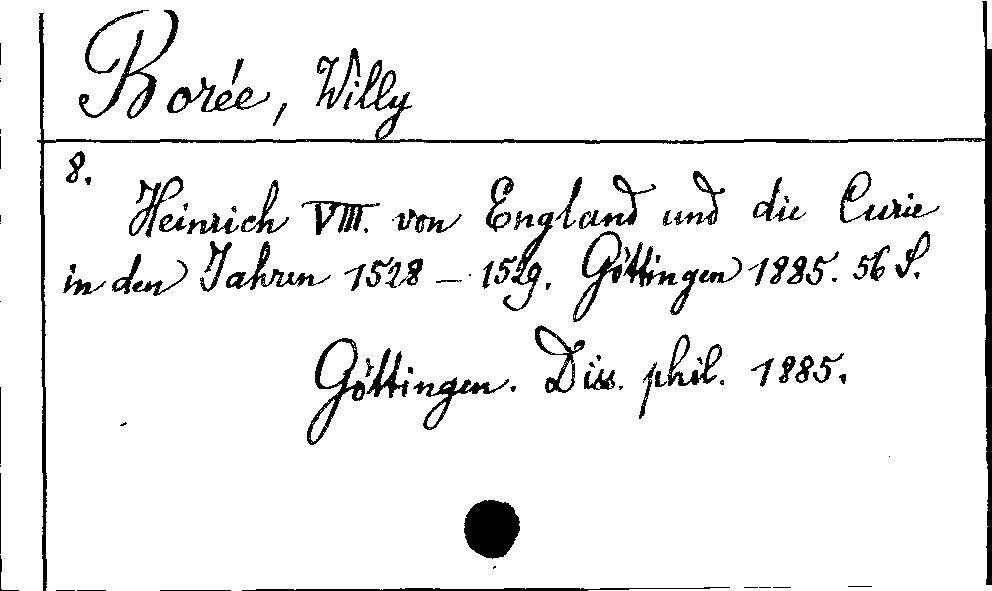 Borée, Willy
8.
Heinrich VIII. von England und die Curie
in den Jahren 1528 – 1529. Göttingen 1885. 56 S.
Göttingen. Diss. phil. 1885.